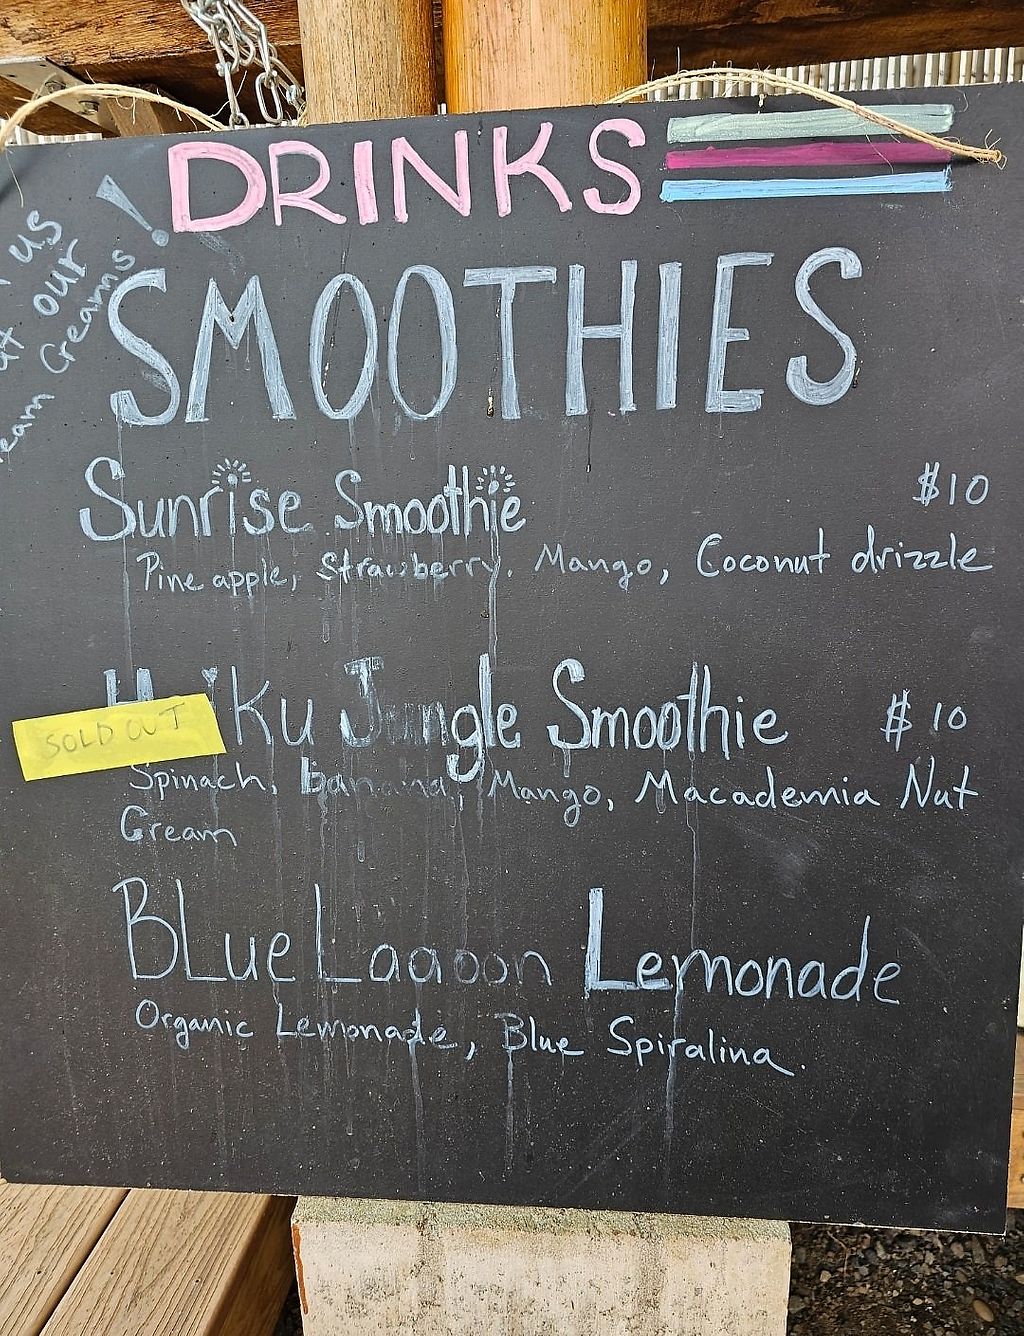 DRINKS
us
our
Creams!
SMOOTHIES
Sunrise Smoothie $10
Pineapple, Strawberry, Mango, Coconut drizzle
Haiku Jungle Smoothie $10
SOLD OUT
Spinach, banana, Mango, Macademia Nut
Cream
BLue Lagoon Lemonade
Organic Lemonade, Blue Spiralina.